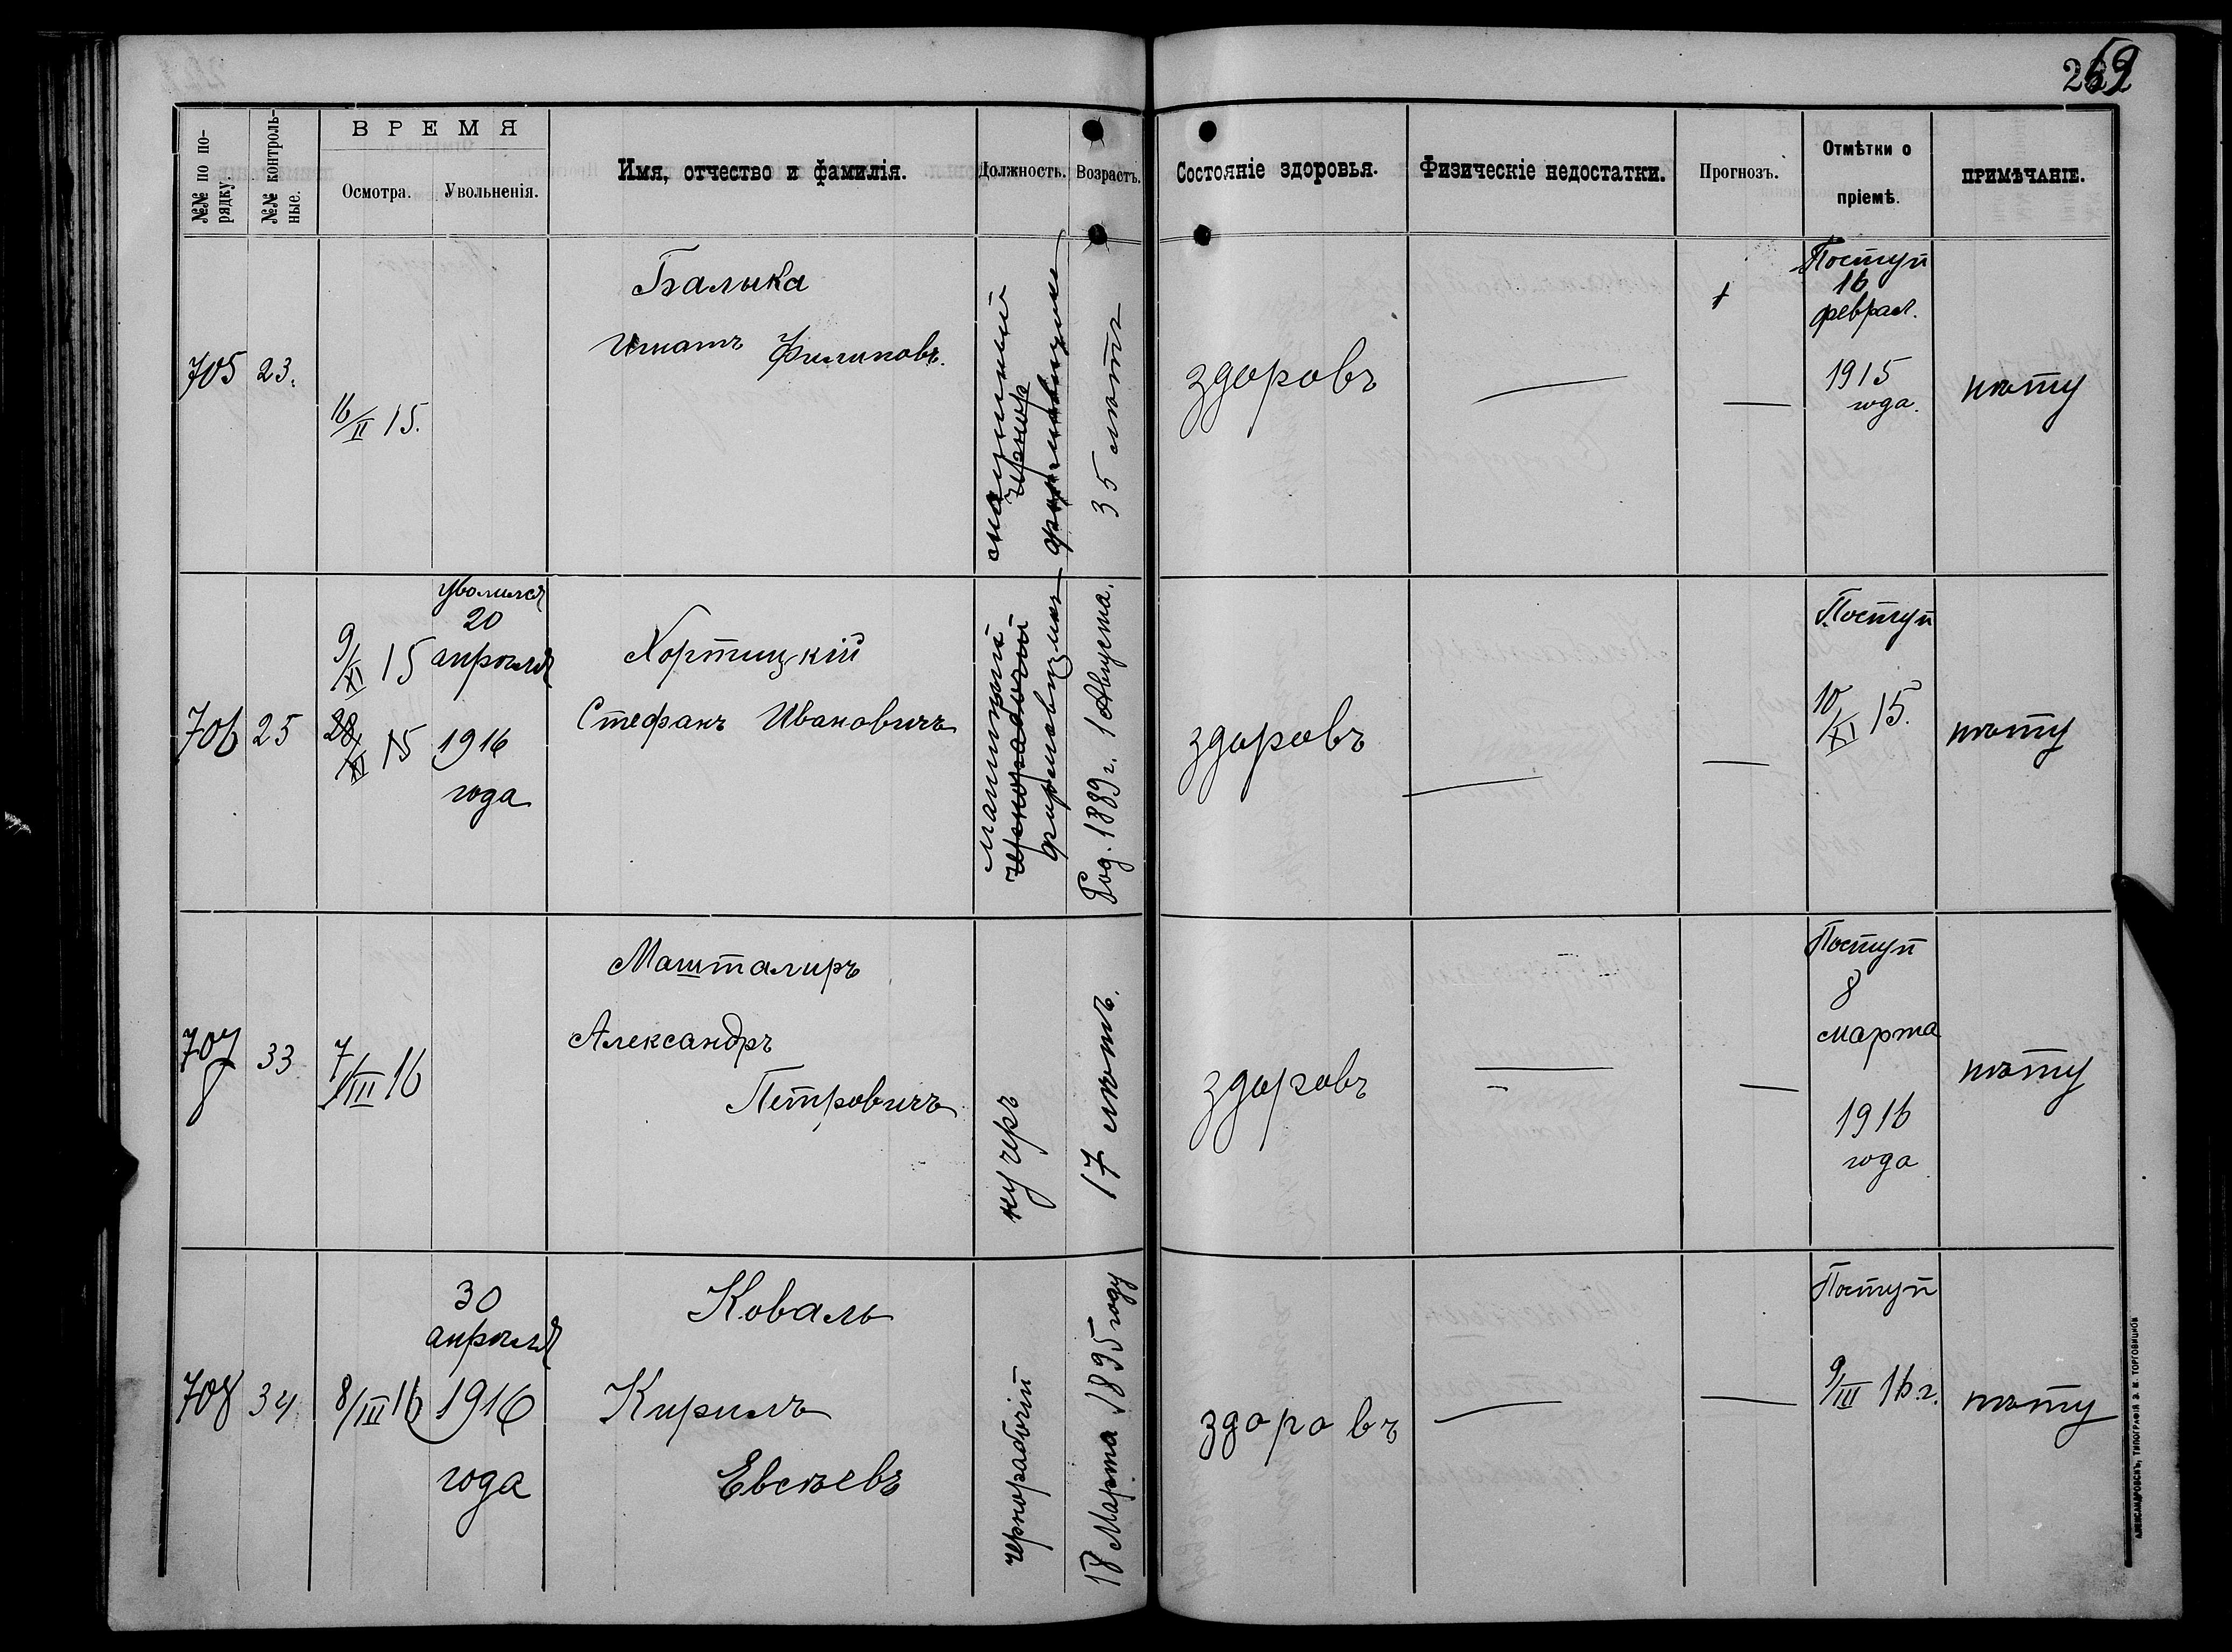 259
№№ по по-
рядку.
№№ контроль-
ные.
ВРЕМЯ
Осмотра.
Увольненія.
Имя, отчество и фамилія.
Должность.
Возрастъ.
Состояніе здоровья.
Физическіе недостатки.
Прогнозъ.
Отмѣтки о
пріемѣ.
ПРИМѢЧАНІЕ.
705
23.
16/II 15.
Балыка
Игнатъ Филиповъ.
чернор
35 лѣтъ
здоровъ
—
—
Поступ
16
феврал.
1915
года.
нѣту
706
25
9/XI 15
28/XI 15
уволился
20
апрѣля
1916
года
Хортицкій
Стефанъ Ивановичъ
чернорабочій
формовщикъ
Род. 1889 г. 1 Августа.
здоровъ
—
—
Поступ
10/XI 15.
нѣту
707
33
7/III 16
Машталиръ
Александръ
Петровичъ
кучеръ
17 лѣтъ.
здоровъ
—
—
Поступ
8
марта
1916
года
нѣту
708
34
8/III 16
30
апрѣля
1916
года
Коваль
Кирилъ
Евсѣевъ
чернорабочій
18 Марта 1895 году
здоровъ
—
—
Поступ
9/III 16 г.
нѣту
АЛЕКСАНДРОВСКЪ, ТИПОГРАФІЯ Э. И. ТОРГОВИЦКОВ